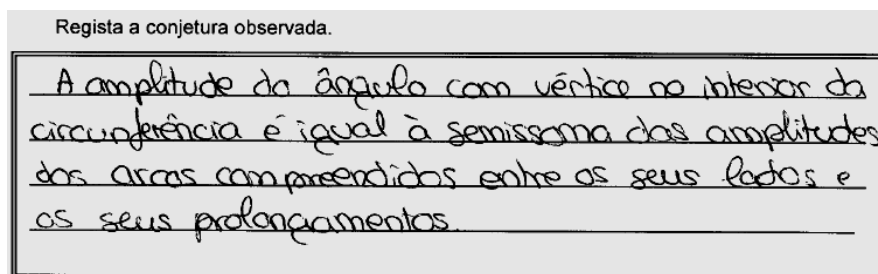 Regista a conjetura observada.
A amplitude do ângulo com vértice no interior da
circunferência é igual à semissoma das amplitudes
dos arcos compreendidos entre os seus lados e
os seus prolongamentos.